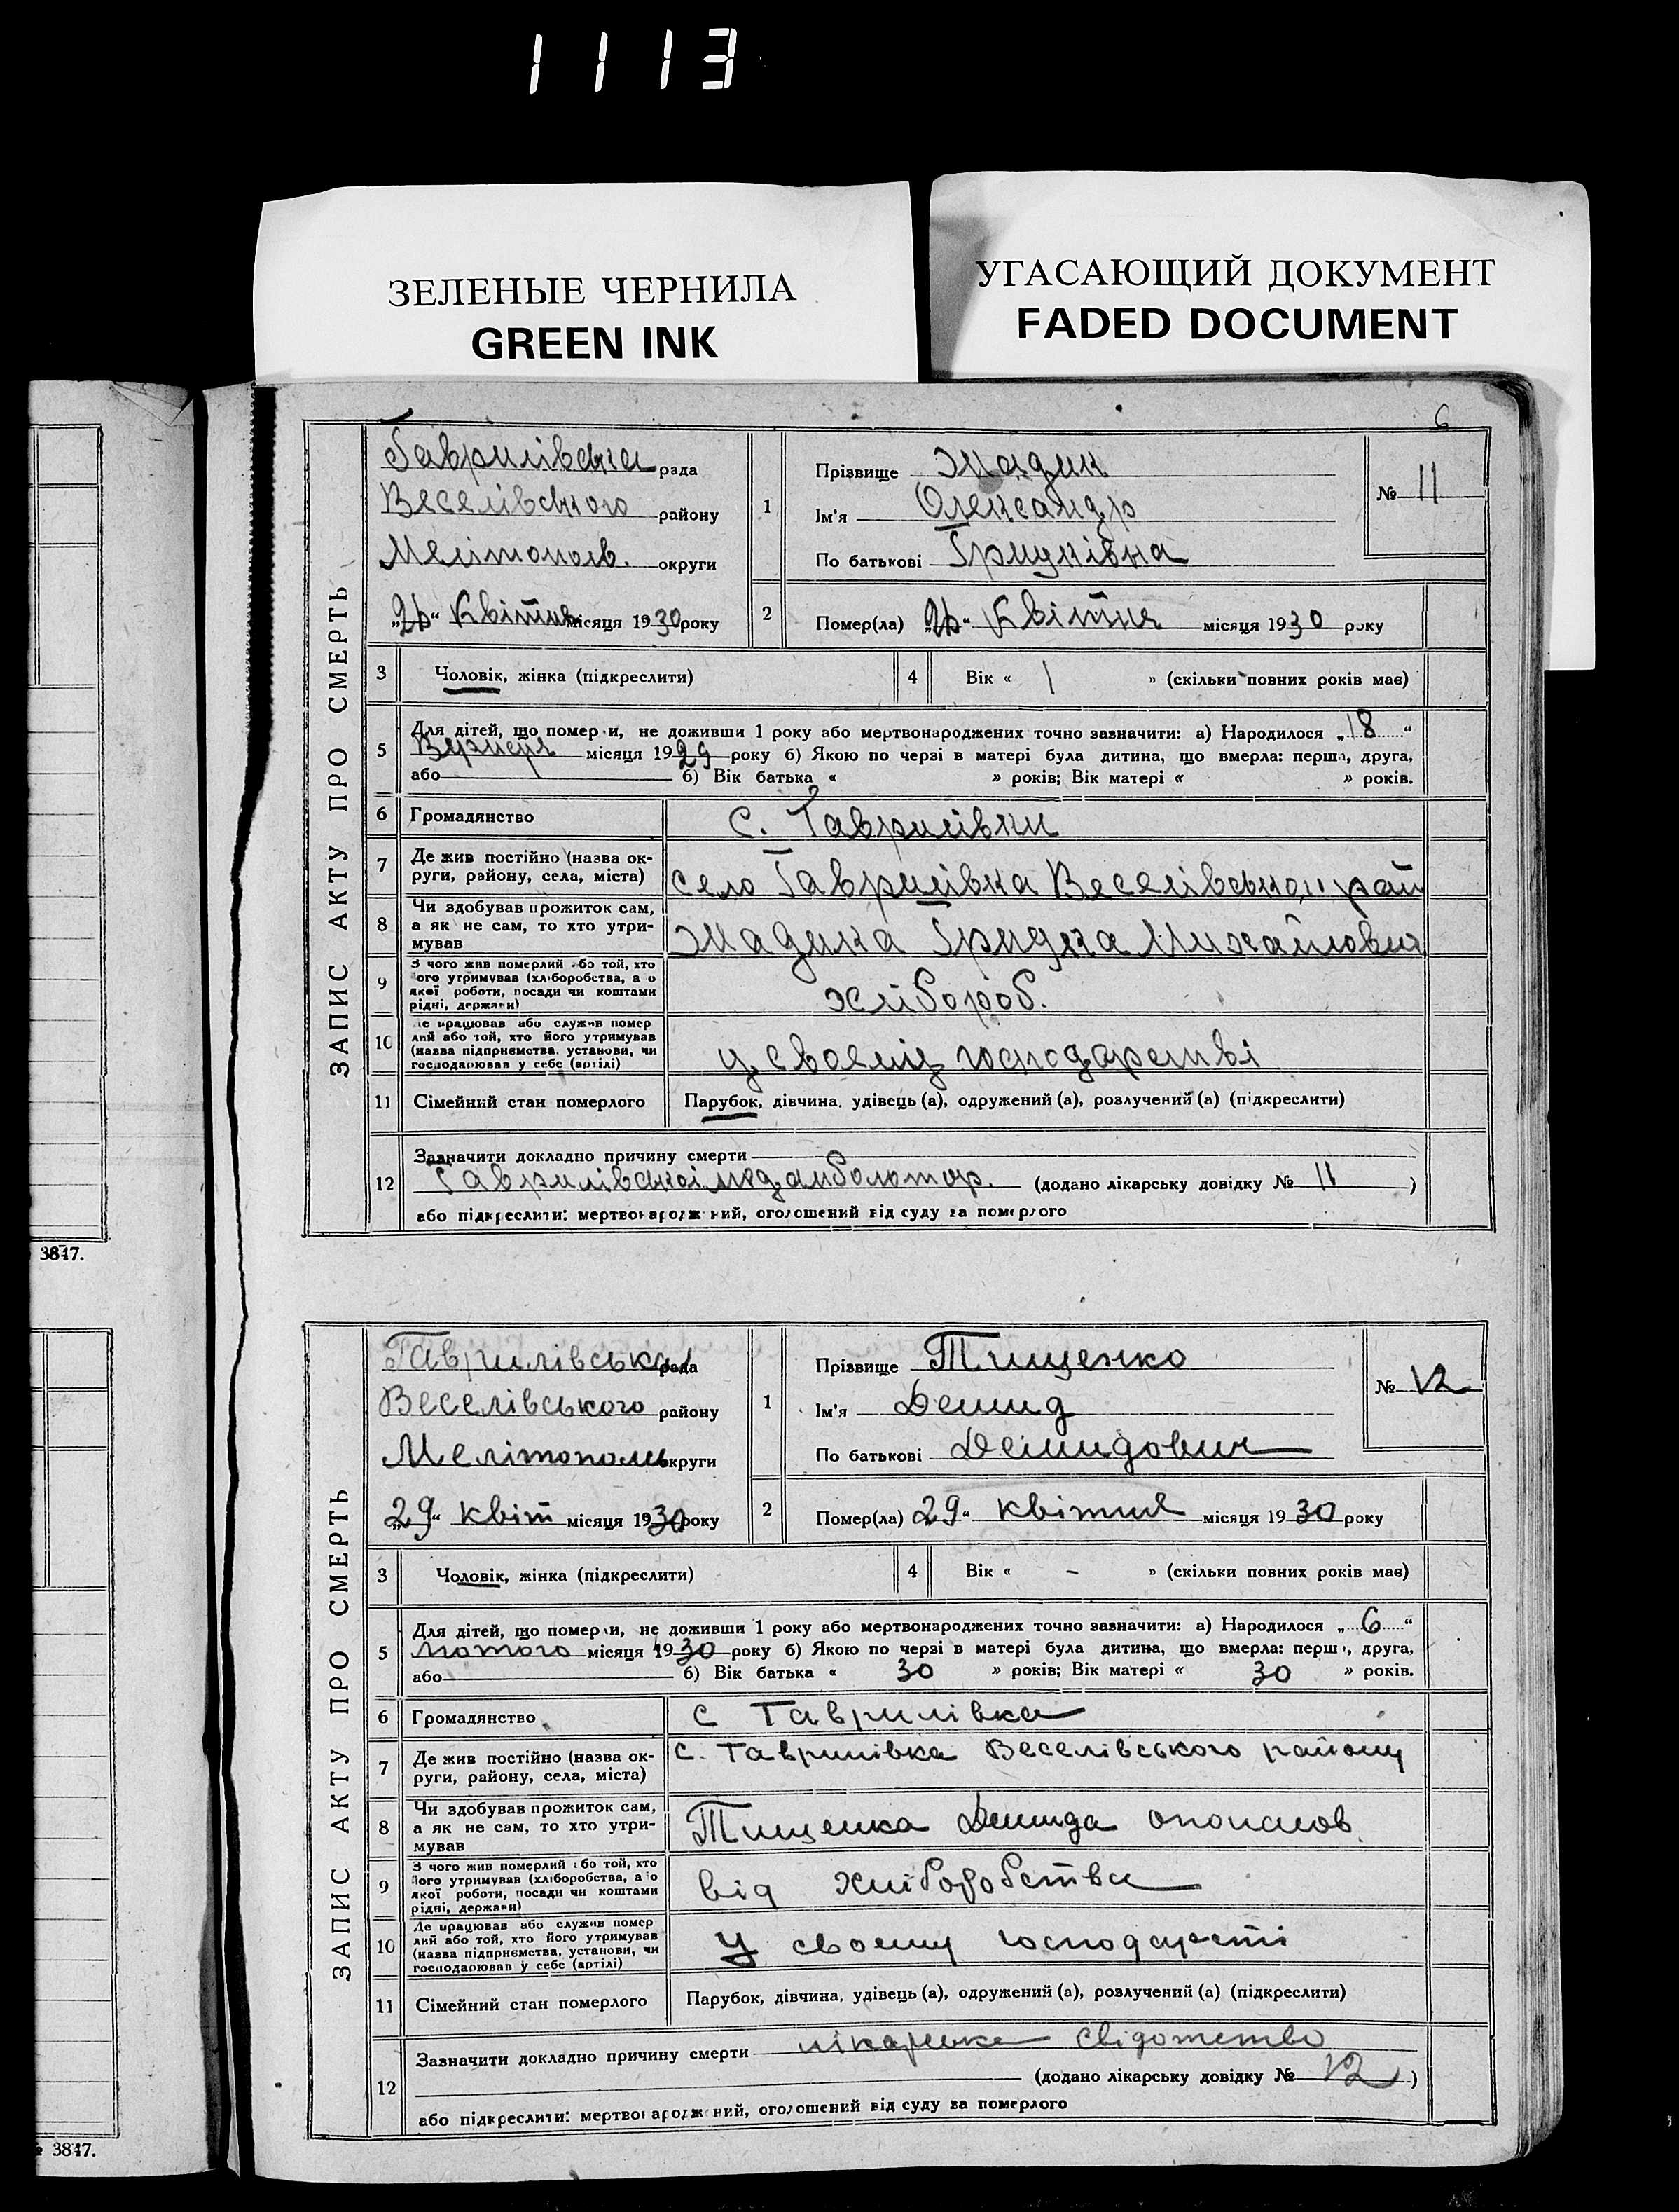 1113
ЗЕЛЕНЫЕ ЧЕРНИЛА
GREEN INK
УГАСАЮЩИЙ ДОКУМЕНТ
FADED DOCUMENT
6
ЗАПИС АКТУ ПРО СМЕРТЬ
Гаврилівська рада
Веселівського району
Мелітополь. округи
Квітня місяця 1930 року
1
Прізвище
Ім'я Олександр
По батькові Грицківна
№ 11
2
Помер(ла) Квітня місяця 1930 року
3 Чоловік, жінка (підкреслити)
4 Вік « 1 » (скільки повних років має)
5 Для дітей, що померли, не доживши 1 року або мертвонароджених точно зазначити: а) Народилося „18“
місяця 1929 року б) Якою по черзі в матері була дитина, що вмерла: перша, друга,
або б) Вік батька « » років; Вік матері « » років.
6 Громадянство с. Гаврилівки
7 Де жив постійно (назва округи, району, села, міста) село Гаврилівка Веселівського рай
8 Чи здобував прожиток сам, а як не сам, то хто утримував Михайлович
9 З чого жив померлий або той, хто його утримував (хліборобства, або якої роботи, посади чи коштами рідні, держави) хлібороб.
10 Де працював або служив помер лий або той, хто його утримував (назва підприємства, установи, чи господарював у себе (артілі) у своєму господарстві
11 Сімейний стан померлого Парубок, дівчина, удівець (а), одружений (а), розлучений (а) (підкреслити)
12 Зазначити докладно причину смерти
Гаврилівської медамболатор. (додано лікарську довідку № 11)
або підкреслити: мертвонароджений, оголошений від суду за померлого
3847.
ЗАПИС АКТУ ПРО СМЕРТЬ
Гаврилівська рада
Веселівського району
Мелітополь округи
„29“ квіт місяця 1930 року
1
Прізвище Тищенко
Ім'я Демид
По батькові Демидович
№ 12
2
Помер(ла) 29“ квітня місяця 1930 року
3 Чоловік, жінка (підкреслити)
4 Вік « – » (скільки повних років має)
5 Для дітей, що померли, не доживши 1 року або мертвонароджених точно зазначити: а) Народилося „6“
лютого місяця 1930 року б) Якою по черзі в матері була дитина, що вмерла: перша, друга,
або б) Вік батька « 30 » років; Вік матері « 30 » років.
6 Громадянство с Гаврилівка
7 Де жив постійно (назва округи, району, села, міста) с. Гаврилівка Веселівського району
8 Чи здобував прожиток сам, а як не сам, то хто утримував Тищенка Демида опонасов.
9 З чого жив померлий або той, хто його утримував (хліборобства, або якої роботи, посади чи коштами рідні, держави) від хліборобства
10 Де працював або служив помер лий або той, хто його утримував (назва підприємства, установи, чи господарював у себе (артілі) У своєму господарсті
11 Сімейний стан померлого Парубок, дівчина, удівець (а), одружений (а), розлучений (а) (підкреслити)
12 Зазначити докладно причину смерти лікарське свідотство
(додано лікарську довідку № 12)
або підкреслити: мертвонароджений, оголошений від суду за померлого
3847.